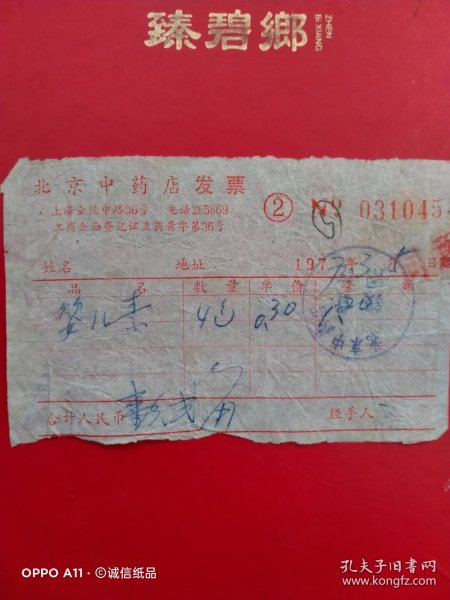 臻碧鄉
ZHEN
BI XIANG
北京中药店发票
上海金陵中路36号 电话285869
工商企业登记证卫药黄字第36号
② № 031045
5
姓名 地址 1973年3月5日
品名 数量 单价 金额
婴儿素 4包 0.30 1.20
合计人民币 经手人
OPPO A11 · ©诚信纸品
孔夫子旧书网
www.kongfz.com